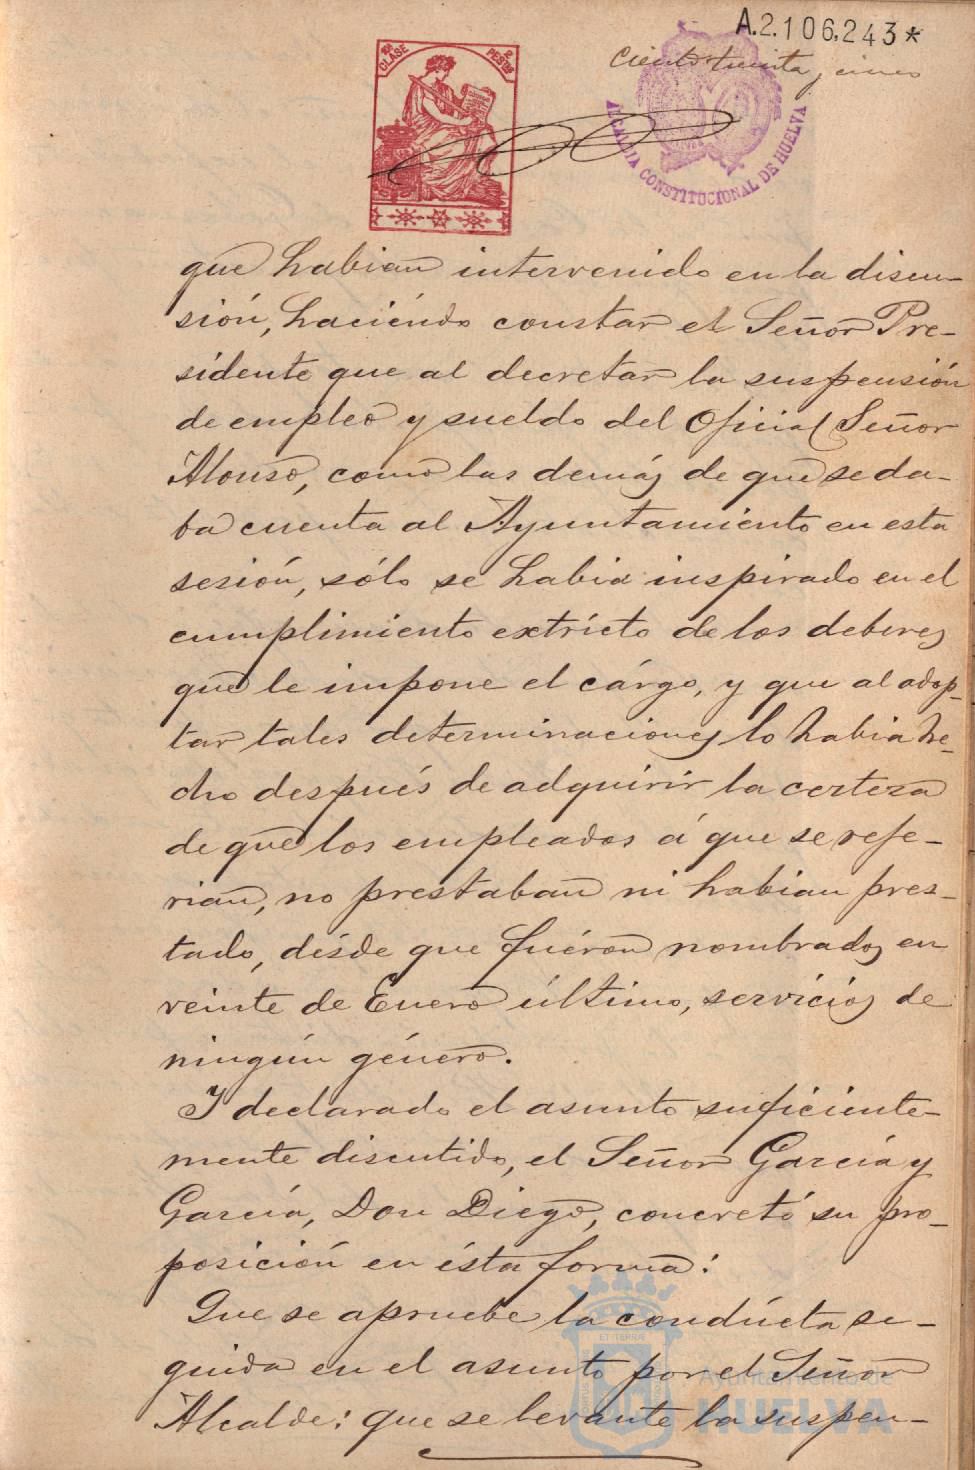 A.2.106.243*
Ciento treinta y cinco
10ª CLASE 2 PESTAS
ALCALDIA CONSTITUCIONAL DE HUELVA
que habian intervenido en la discu-
sión, haciéndo constar el Señor Pre-
sidente que al decretar la suspensión
de empleo y sueldo del Oficial Señor
Alonso, como las demás de que se da-
ba cuenta al Ayuntamiento en esta
sesión, sólo se habia inspirado en el
cumplimiento extrícto de los deberes
que le impone el cárgo, y que al adop-
tar tales determinaciones lo habia he-
cho después de adquirir la certeza
de que los empleados á que se refe-
rian, no prestaban ni habian pres-
tado, désde que fuéron nombrados en
veinte de Enero último, servicios de
ningún género.
Y declarado el asunto suficiente-
mente discutido, el Señor García y
García, Don Diego, concretó su pro-
posición en ésta forma:
Que se apruebe la condúcta se-
guida en el asunto por el Señor
Alcalde: que se levante la suspen-
Ayuntamiento de
HUELVA